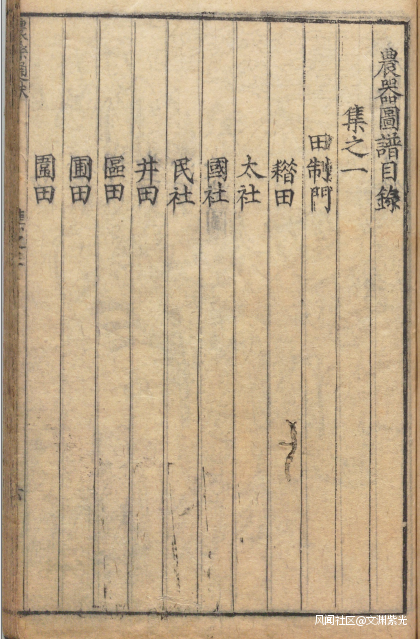 農器圖譜目錄
集之一
田制門
耤田
太社
國社
民社
井田
區田
圃田
圍田
风闻社区@文洲紫光